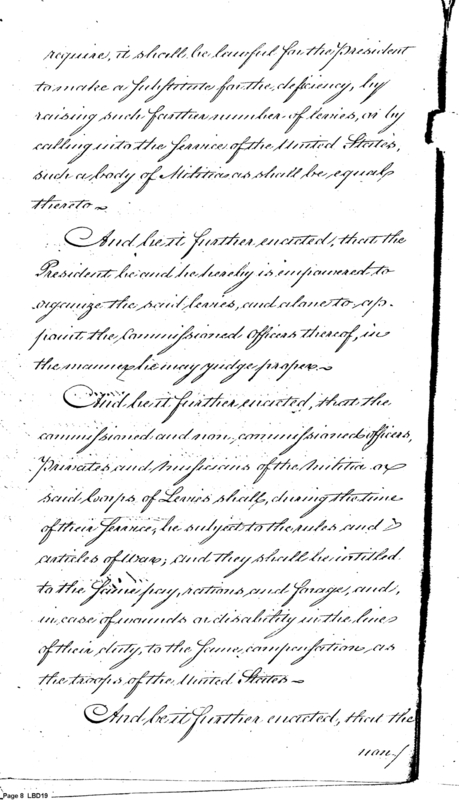 require, it shall be lawful for the President
to make a substitute for the deficiency, by
raising such farther number of levies, or by
calling into the Service of the United States,
such a body of Militia as shall be equal
thereto ~
And be it further enacted, that the
President be and he hereby is impowered to
organize the said levies, and alone to ap-
point the Commissioned Officers thereof, in
the manner he may judge proper. ~
And be it further enacted, that the
commissioned and non-commissioned officers,
Privates and Musicians of the Militia or
said Corps of Levies shall, during the time
of their Service, be subject to the rules and
articles of War; and they shall be intitled
to the same pay, rations and forage, and,
in case of wounds or disability in the line
of their duty, to the same compensation as
the troops of the United States ~
And be it further enacted, that the
non-/
Page 8 LBD19